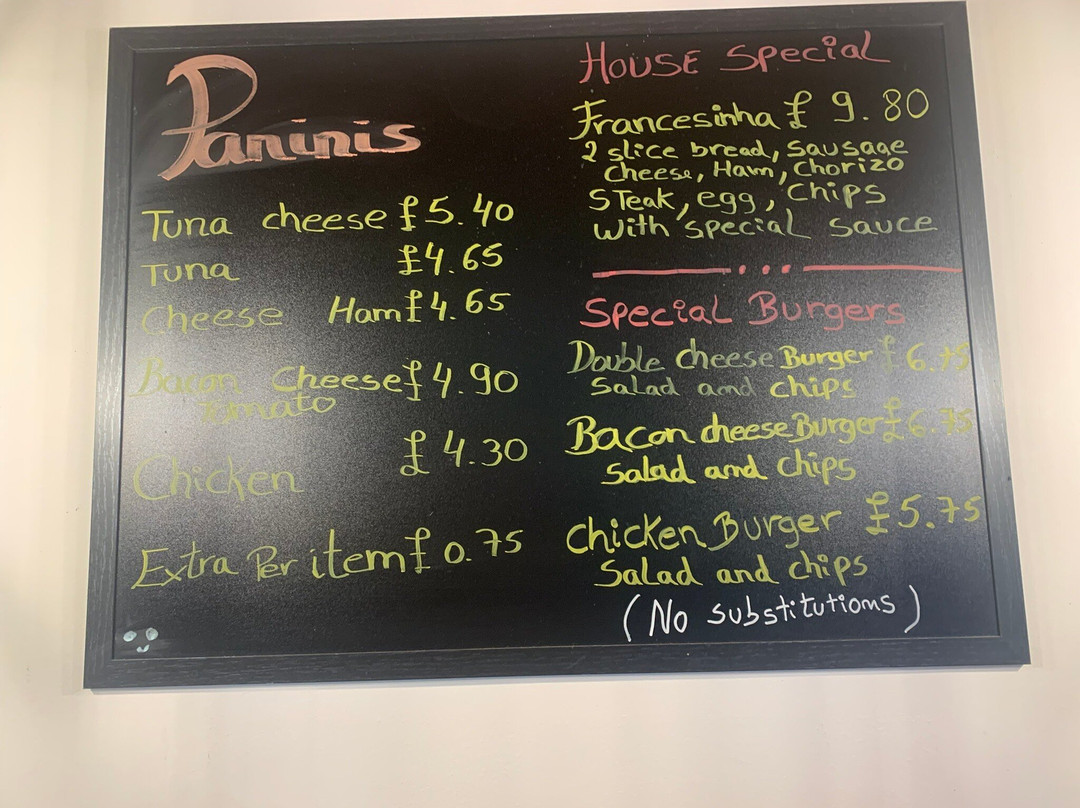 Paninis
Tuna cheese £5.40
Tuna £4.65
Cheese Ham £4.65
Bacon Cheese £4.90
tomato
Chicken £4.30
Extra Per item £0.75
House Special
Francesinha £9.80
2 slice bread, sausage
cheese, Ham, Chorizo
Steak, egg, chips
with special sauce
Special Burgers
Double cheese Burger £6.75
Salad and chips
Bacon cheese Burger £6.75
Salad and chips
Chicken Burger £5.75
Salad and chips
(No substitutions)